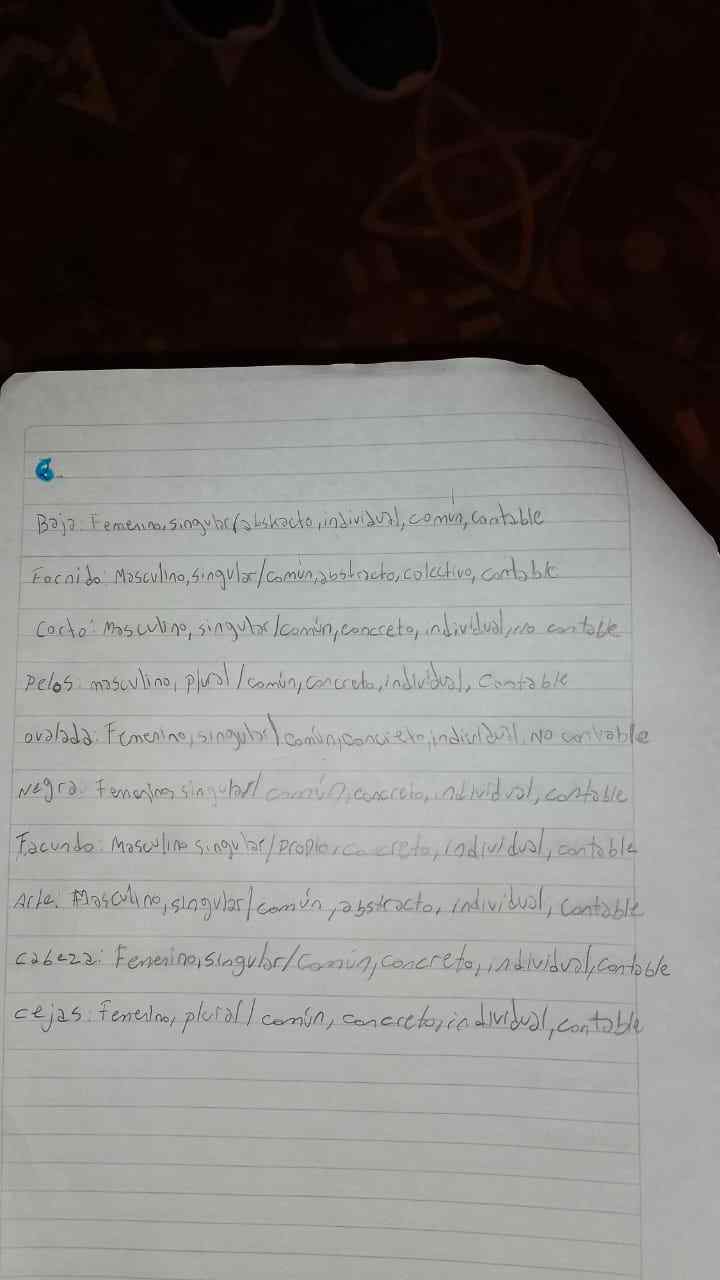 6.
Baja: Femenino, singular/abstracto, individual, común, contable
Fornido: Masculino, singular/común, abstracto, colectivo, contable
Corto: Masculino, singular/común, concreto, individual, no contable
Pelos: masculino, plural/común, concreto, individual, Contable
ovalada: Femenino, singular/común, concreto, individual, No contable
Negra: Femenino, singular/común, concreto, individual, contable
Facundo: Masculino singular/propio, concreto, individual, contable
Arte: Masculino, singular/común, abstracto, individual, contable
cabeza: Femenino, singular/común, concreto, individual, contable
cejas: Femenino, plural/común, concreto, individual, contable